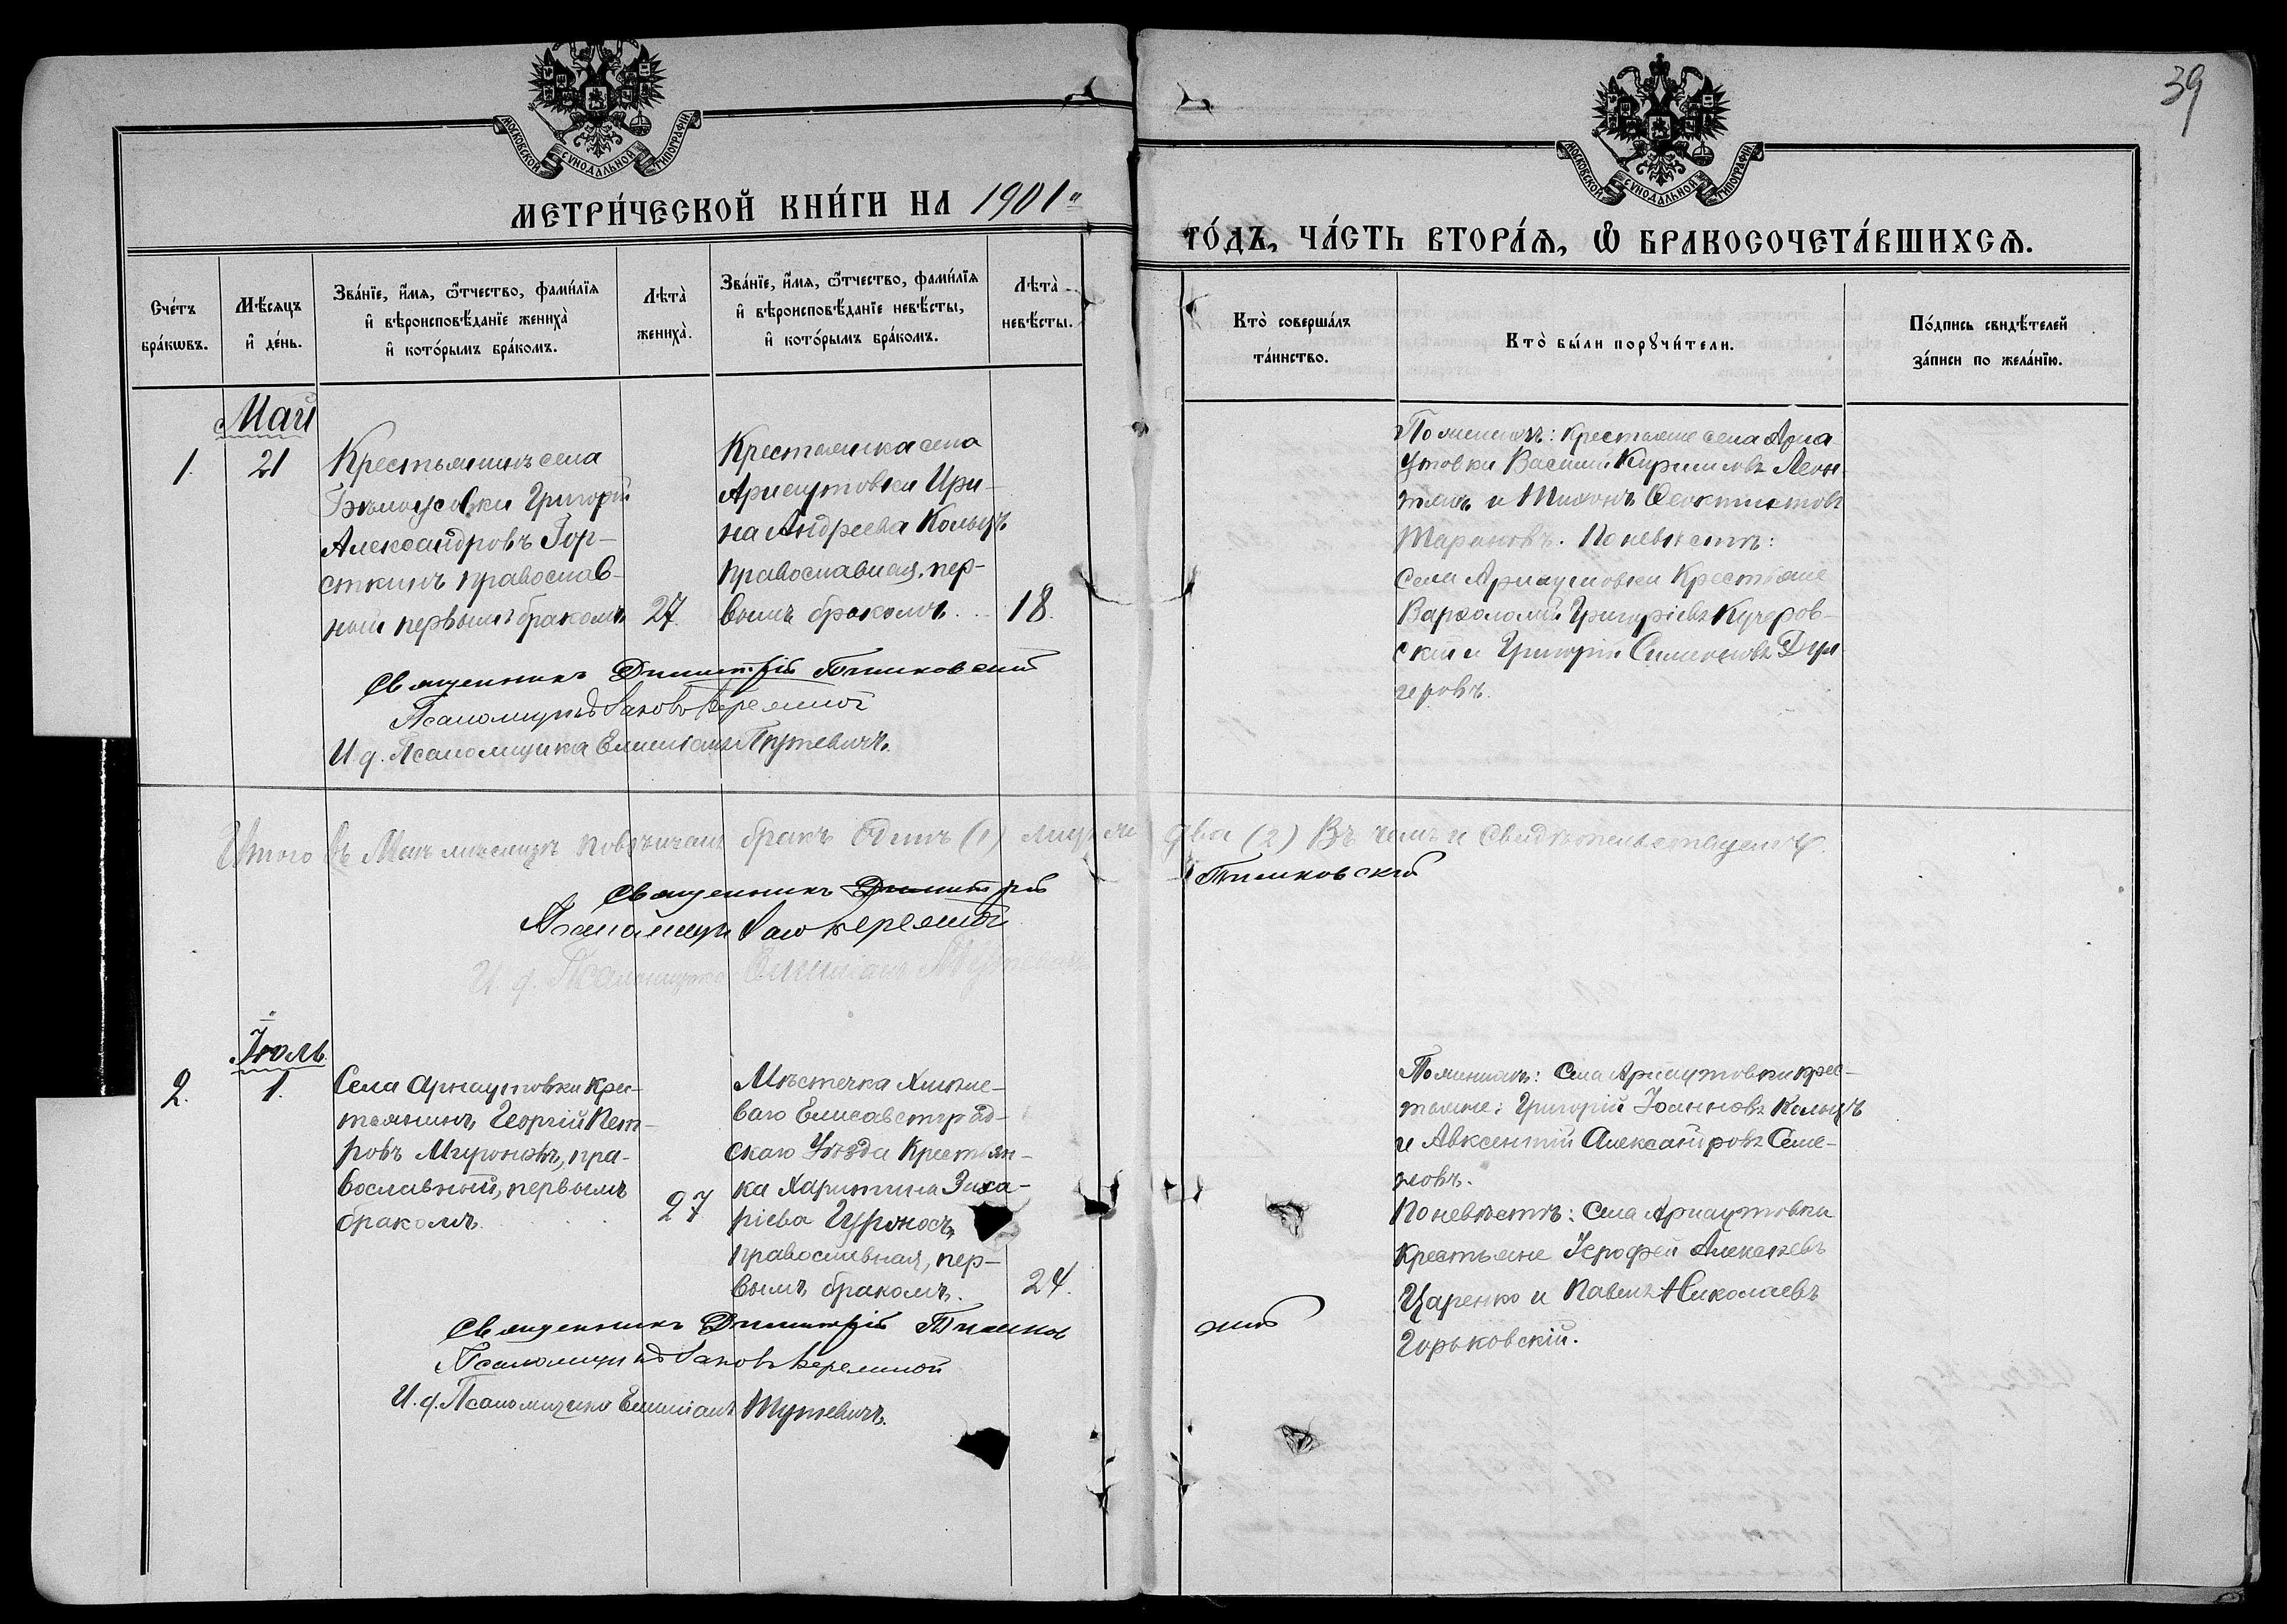 39
МОСКОВСКОЙ СѴНОДАЛЬНОЙ ТИПОГРАФІИ
МОСКОВСКОЙ СѴНОДАЛЬНОЙ ТИПОГРАФІИ
МЕТРИ́ЧЕСКОЙ КНИ́ГИ НА 1901й
ГО́ДЪ, ЧА́СТЬ ВТОРА́Ѧ, Ѡ҆ БРАКОСОЧЕТА́ВШИХСѦ.
Сче́тъ
бра́кѡвъ.
Мѣ́сѧцъ
и҆ де́нь.
Зва́нїе, и҆́мѧ, ѻ҆́тчество, фами́лїѧ
и҆ вѣроисповѣ́данїе жениха̀
и҆ кото́рымъ бра́комъ.
Лѣта̀
жениха̀.
Зва́нїе, и҆́мѧ, ѻ҆́тчество, фами́лїѧ
и҆ вѣроисповѣ́данїе невѣ́сты,
и҆ кото́рымъ бра́комъ.
Лѣта̀
невѣ́сты.
Кто̀ соверша́лъ
та́инство.
Кто̀ бы́ли порꙋчи́тели.
По́дпись свидѣ́телей
за́писи по жела́нїю.
Май
1.
21
Крестьянинъ села
Бѣлоусовки Григорій
Александровъ Гор-
сткинъ православ-
ный первымъ бракомъ
27.
Крестьянка села
Арнаутовки Ири-
на Андреева Кольцъ
православная, пер-
вымъ бракомъ.
18.
По женихѣ: крестьяне села Арна-
утовки Василій Кирилловъ Леон-
тьевъ и Тихонъ Ѳеоктистовъ
Тарановъ. По невѣстѣ:
Села Арнаутовки Крестьяне
Варѳоломей Григоріевъ Кучеров-
скій и Григорій Симеоновъ
Священникъ Димитрій
Псаломщикъ Іаковъ
И. д. Псаломщика Емиліанъ
Итого въ Маѣ мѣсяцѣ повѣнчанъ бракъ одинъ (1) лицъ
два (2) Въ чемъ и свидѣтельствуемъ.
Священникъ Димитрій
Псаломщикъ
И. д. Псаломщика Емиліанъ
Іюль
2.
1.
Села Арнаутовки Крес-
тьянинъ Георгій Пет-
ровъ Мироновъ, пра-
вославный, первымъ
бракомъ.
27
Мѣстечка Хмѣле-
ваго Елисаветград-
скаго Уѣзда Крестьян-
ка Харитина Заха-
ріева
православная, пер-
вымъ бракомъ.
24.
По женихѣ: Села Арнаутовки крес-
тьяне: Григорій Іоанновъ Кольцъ
и Авксентій Александровъ Семе-
новъ.
По невѣстѣ: Села Арнаутовки
крестьяне Іерофей Алексѣевъ
Царенко и Павелъ Николаевъ
Горьковскій.
Священникъ Димитрій
Псаломщикъ Іаковъ
И. д. Псаломщика Емиліанъ